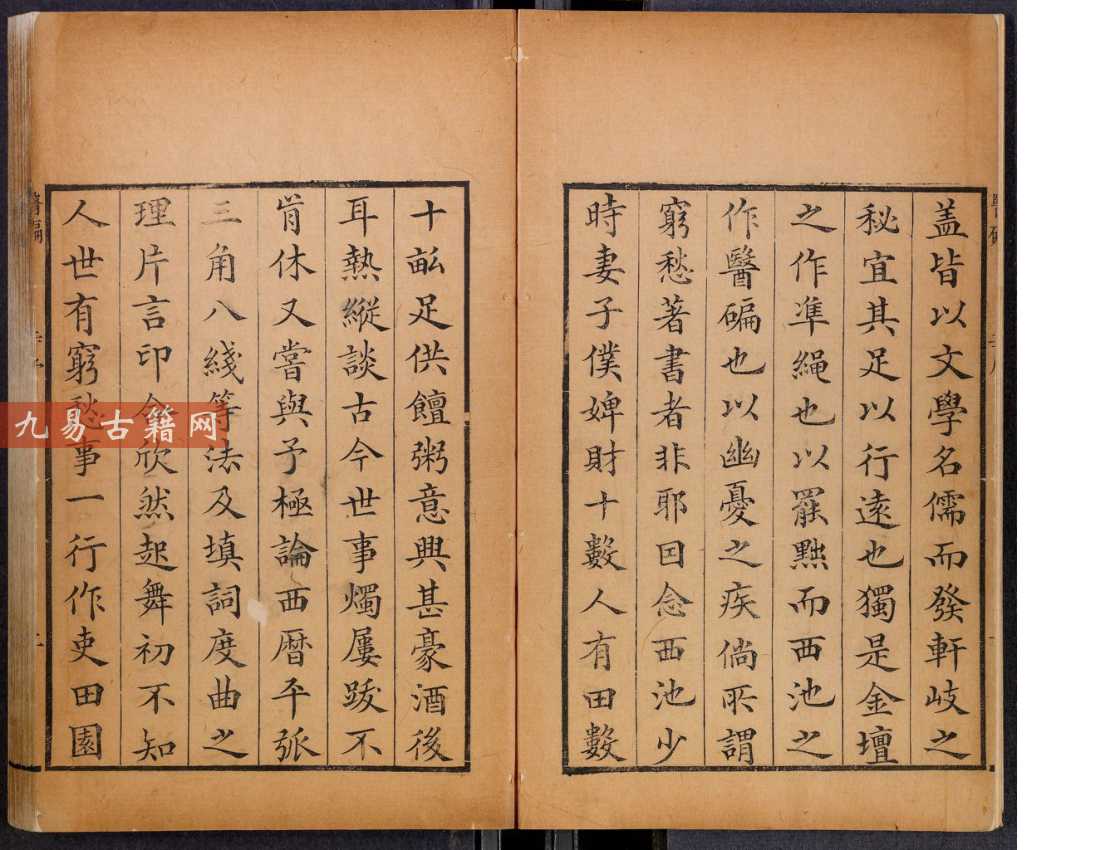 盖皆以文學名儒而發軒岐之
秘宜其足以行遠也獨是金壇
之作凖繩也以罷黜而西池之
作醫碥也以幽憂之疾倘所謂
窮愁著書者非耶因念西池少
時妻子僕婢財十數人有田數
十畝足供饘粥意興甚豪酒後
耳熱縱談古今世事燭屢跋不
肯休又嘗與予極論西曆平弧
三角八綫等法及填詞度曲之
理片言印合欣然起舞初不知
人世有窮愁事一行作吏田園
九易古籍网